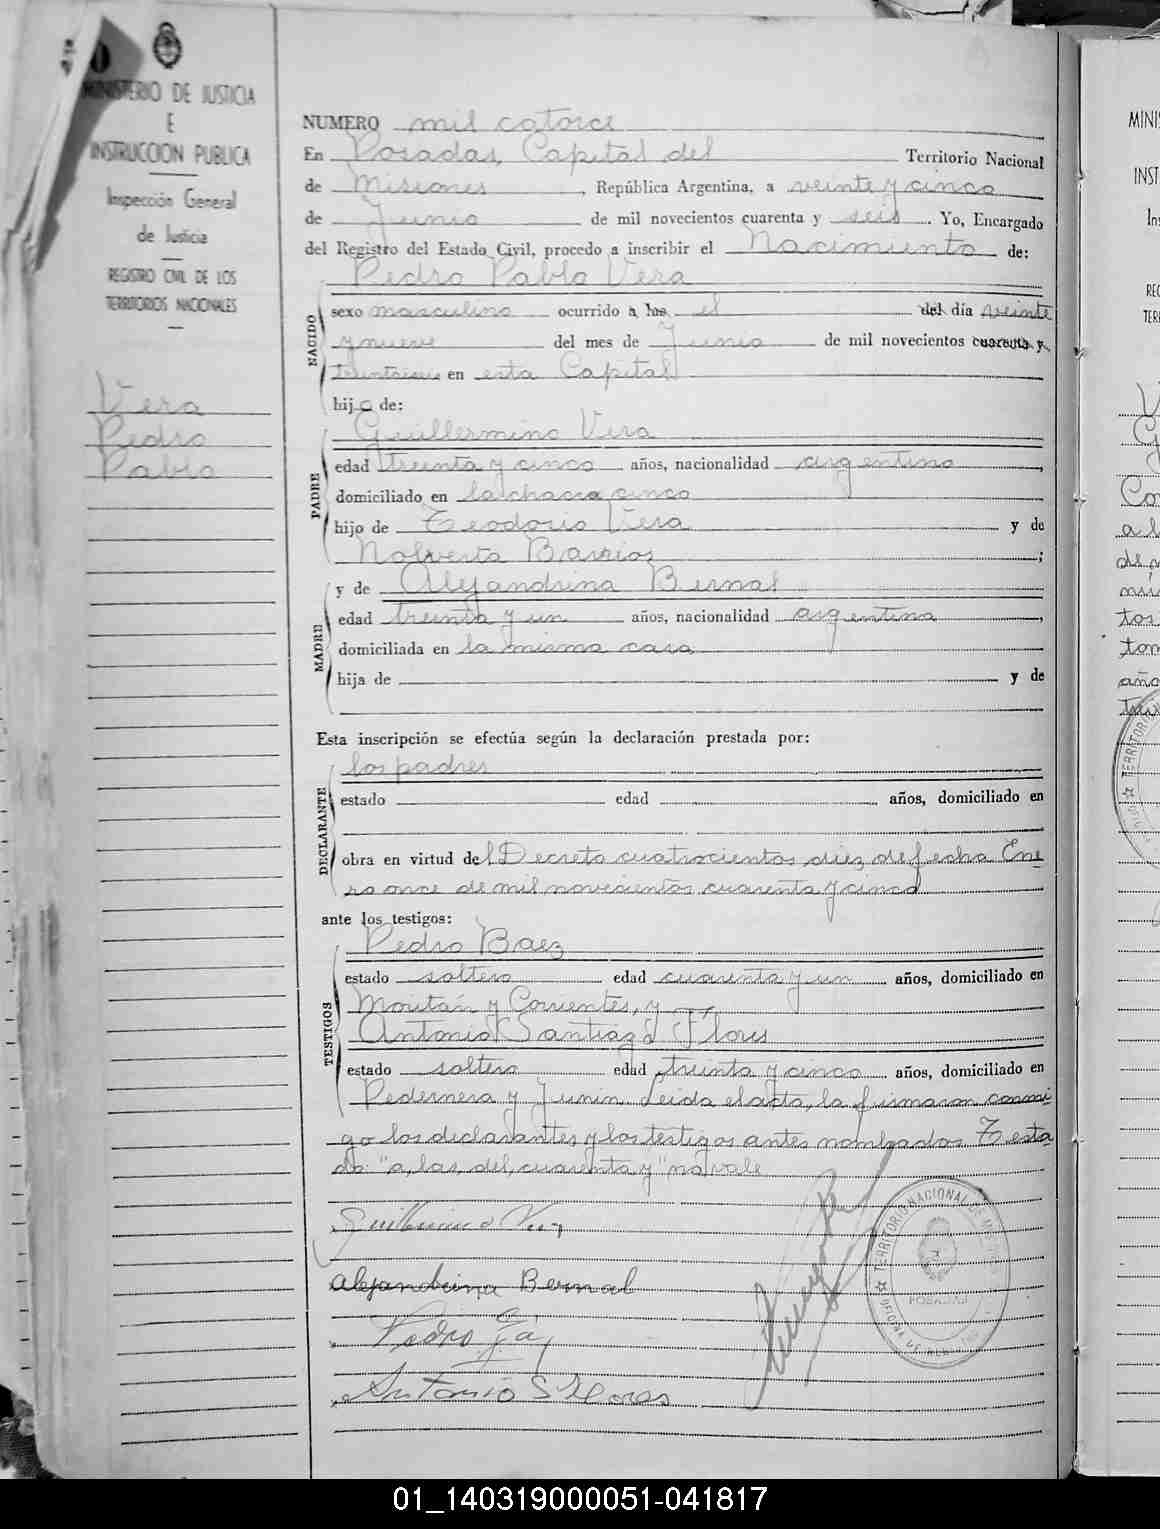 MINISTERIO DE JUSTICIA
E
INSTRUCCION PUBLICA
Inspección General
de Justicia
REGISTRO CIVIL DE LOS
TERRITORIOS NACIONALES
Vera
Pedro
Pablo
NUMERO mil catorce
En Posadas, Capital del Territorio Nacional
de Misiones, República Argentina, a veinte y cinco
de Junio de mil novecientos cuarenta y seis. Yo, Encargado
del Registro del Estado Civil, procedo a inscribir el Nacimiento de:
Pedro Pablo Vera
NACIDO
sexo masculino ocurrido a las el del día veinte
y nueve del mes de Junio de mil novecientos cuarenta y
treintaiseis en esta Capital
hijo de:
PADRE
Guillermino Vera
edad treinta y cinco años, nacionalidad argentina,
domiciliado en la chacra cinco
hijo de Teodorio Vera y de
Nolverta Barrios;
MADRE
y de Alejandrina Bernal
edad treinta y un años, nacionalidad argentina,
domiciliada en la misma casa
hija de y de
Esta inscripción se efectúa según la declaración prestada por:
DECLARANTE
los padres
estado edad años, domiciliado en
obra en virtud del Decreto cuatrocientos diez de fecha Ene-
ro once de mil novecientos cuarenta y cinco
ante los testigos:
TESTIGOS
Pedro Baez
estado soltero edad cuarenta y un años, domiciliado en
y Corrientes, y
Antonio Santiago Flores
estado soltero edad treinta y cinco años, domiciliado en
Pedernera y Junin. Leida el acta, la firmaron conmi-
go los declarantes y los testigos antes nombrados. Testa-
do: "a, las, del, cuarenta y" no vale
Guillermino Vera
Alejandrina Bernal
Pedro
Antonio S Flores
TERRITORIO NACIONAL DE MISIONES
POSADAS
01_140319000051-041817